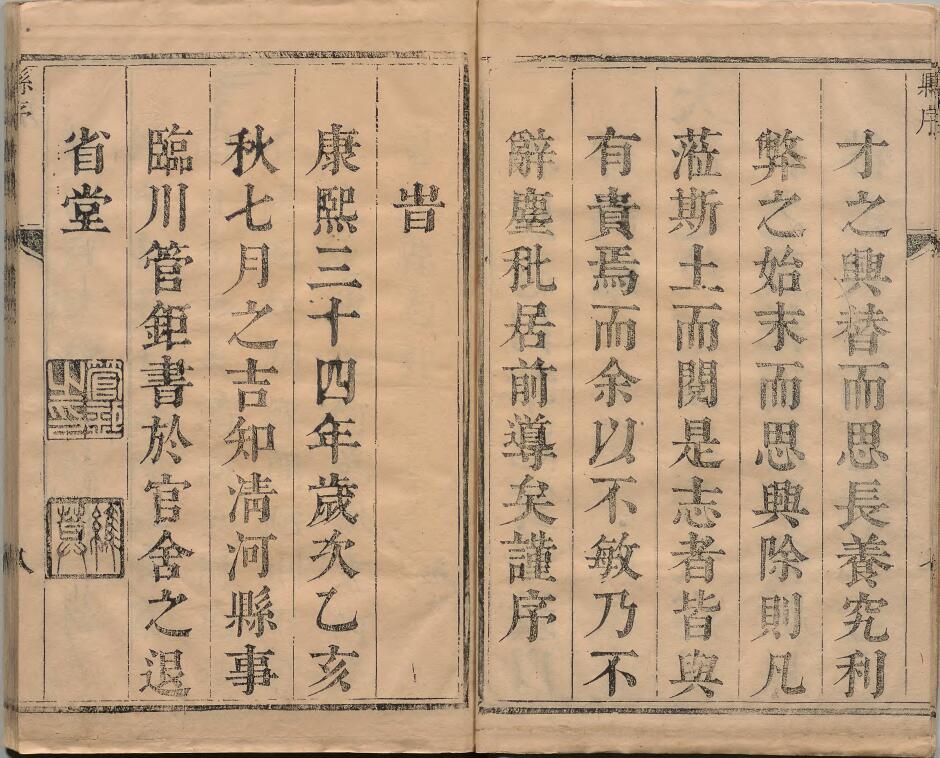 縣序
才之興替而思長養究利
弊之始末而思興除則凡
蒞斯土而閱是志者皆與
有貴焉而余以不敏乃不
辭塵秕居前導矣謹序
旹
康熙三十四年歲次乙亥
秋七月之吉知清河縣事
臨川管鉅書於官舍之退
省堂
縣序
八